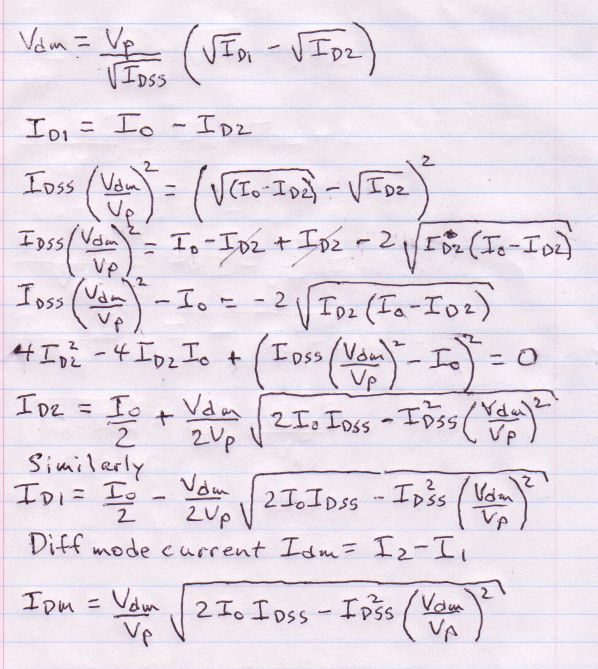 Vdm = Vp/√IDSS (√ID1 - √ID2)
ID1 = IO - ID2
IDSS (Vdm/Vp)² = (√(Io-ID2) - √ID2)²
IDSS (Vdm/Vp)² = Io - ID2 + ID2 - 2 √ID2(Io-ID2)
IDSS (Vdm/Vp)² - Io = -2 √ID2(Io-ID2)
4ID2² - 4ID2Io + (IDSS (Vdm/Vp)² - Io)² = 0
ID2 = Io/2 + Vdm/2Vp √2IoIDSS - IDSS² (Vdm/Vp)²
Similarly
ID1 = Io/2 - Vdm/2Vp √2IoIDSS - IDSS² (Vdm/Vp)²
Diff mode current Idm = I2 - I1
IDm = Vdm/Vp √2IoIDSS - IDSS² (Vdm/Vp)²